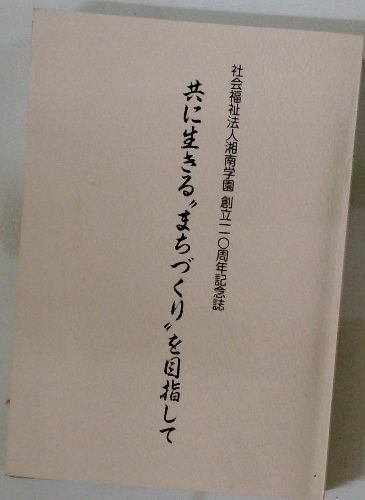 社会福祉法人湘南学園 創立一一〇周年記念誌
共に生きる〝まちづくり〟を目指して